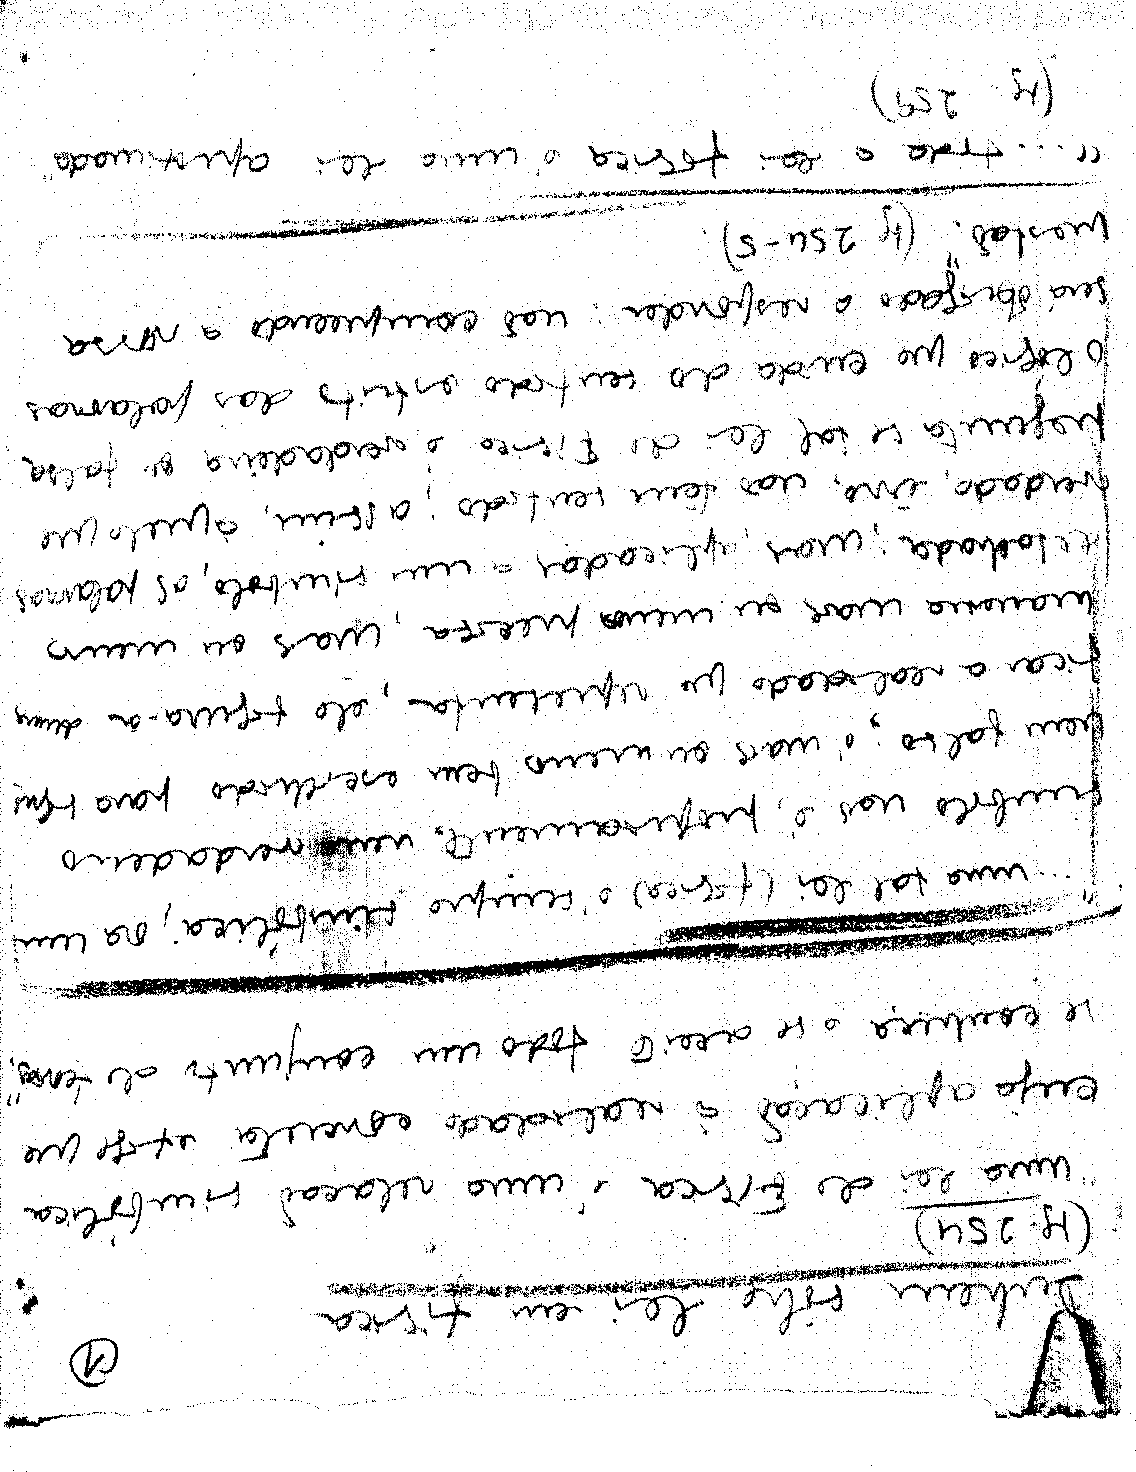 (1)
Duhem sobre lei em física
(pg. 254)
"uma lei de Física é uma relação simbólica
cuja aplicação à realidade concreta exige que
se conheça e se aceite todo um conjunto de teorias",
"... uma tal lei (física) é sempre simbólica; ora um
símbolo não é, propriamente, nem verdadeiro
nem falso; é mais ou menos bem escolhido para signi-
ficar a realidade que representa, ele figura-a duma
maneira mais ou menos precisa, mais ou menos
detalhada; mas, aplicadas a um símbolo, as palavras
verdade, erro, não têm sentido; assim, àquele que
pergunta se tal lei de Física é verdadeira ou falsa
o lógico que cuida do sentido estrito das palavras
será obrigado a responder: não compreendo a vossa
questão". (pg 254-5).
"... toda a lei física é uma lei aproximada"
(pg 259)